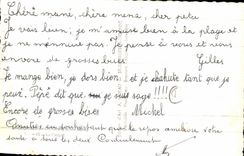 Chère mami, chère mena, cher petu
Je vais bien, je m'amuse bien à la plage et
je ne m'ennuie pas. Je pense à vous et vous
envoie de grosses bises. Gilles
Je mange bien, je dors bien et je chahute tant que je
peux. Pépé dit que je suis sage !!!!
Encore de grosses bises Michel
que le repos améliore votre
santé à tous les deux